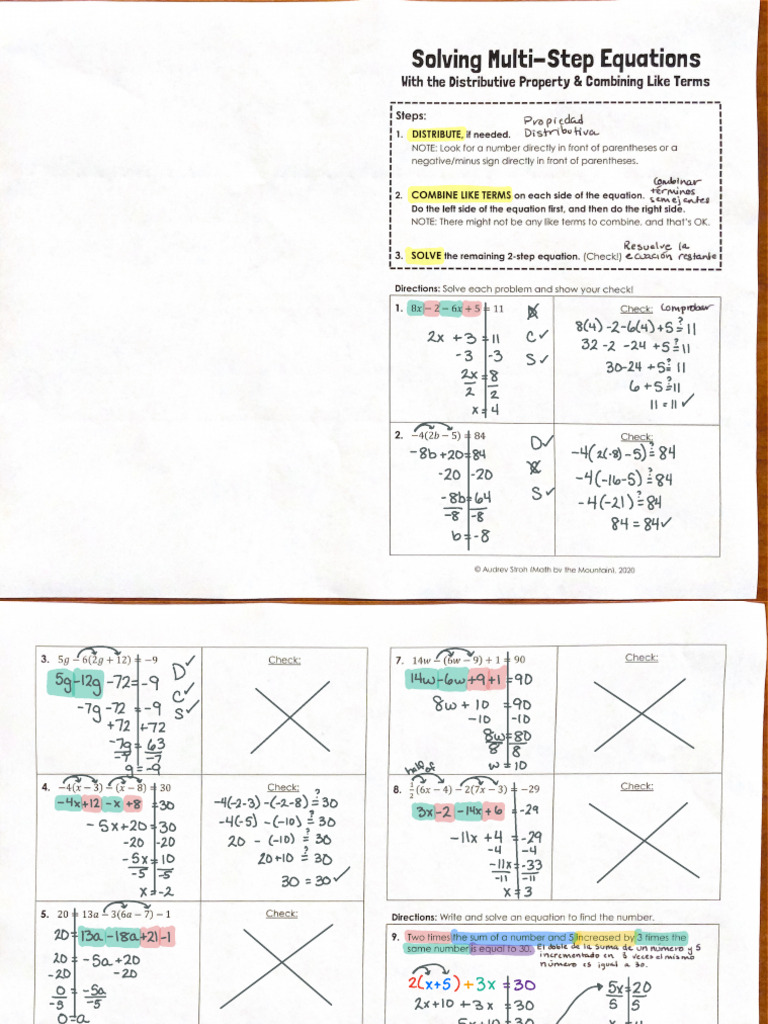 Solving Multi-Step Equations
With the Distributive Property & Combining Like Terms
Steps:
Propiedad
Distributiva
1. DISTRIBUTE, if needed.
NOTE: Look for a number directly in front of parentheses or a
negative/minus sign directly in front of parentheses.
Combinar
términos
semejantes
2. COMBINE LIKE TERMS on each side of the equation.
Do the left side of the equation first, and then do the right side.
NOTE: There might not be any like terms to combine, and that's OK.
Resuelve la
ecuación restante
3. SOLVE the remaining 2-step equation. (Check!)
Directions: Solve each problem and show your check!
1. 8x − 2 − 6x + 5 = 11
2x + 3 = 11
-3 -3
2x = 8
2 2
x = 4
D
C✓
S✓
Check: Comprobar
8(4) -2-6(4)+5 ?= 11
32 -2 -24 +5 ?= 11
30-24 +5 ?= 11
6 +5 ?= 11
11 = 11 ✓
2. −4(2b − 5) = 84
-8b +20 = 84
-20 -20
-8b = 64
-8 -8
b = -8
D✓
C
S✓
Check:
-4(2(-8) -5) ?= 84
-4(-16-5) ?= 84
-4(-21) ?= 84
84 = 84 ✓
© Audrey Stroh (Math by the Mountain), 2020
3. 5g − 6(2g + 12) = −9
5g -12g -72 = -9
-7g -72 = -9
+72 +72
-7g = 63
-7 -7
g = -9
D✓
C✓
S✓
Check:
4. −4(x − 3) − (x − 8) = 30
-4x +12 -x +8 = 30
-5x +20 = 30
-20 -20
-5x = 10
-5 -5
x = -2
Check:
-4(-2-3) -(-2-8) ?= 30
-4(-5) -(-10) ?= 30
20 -(-10) ?= 30
20+10 ?= 30
30 = 30 ✓
5. 20 = 13a − 3(6a − 7) − 1
20 = 13a -18a +21 -1
20 = -5a +20
-20 -20
0 = -5a
-5 -5
0 = a
Check:
7. 14w − (6w − 9) + 1 = 90
14w -6w +9 +1 = 90
8w + 10 = 90
-10 -10
8w = 80
8 8
w = 10
Check:
half of
8. 1/2(6x − 4) − 2(7x − 3) = −29
3x -2 -14x +6 = -29
-11x + 4 = -29
-4 -4
-11x = -33
-11 -11
x = 3
Check:
Directions: Write and solve an equation to find the number.
9. Two times the sum of a number and 5 increased by 3 times the
same number is equal to 30.
El doble de la suma de un número y 5
incrementado en 3 veces el mismo
número es igual a 30.
2(x+5) + 3x = 30
2x+10 +3x = 30
5x+10 = 30
5x = 20
5 5
x = 4